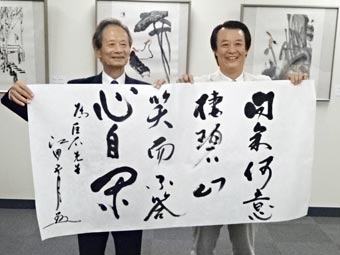 問余何意
棲碧山
笑而不答
心自閑
先生
江田五月